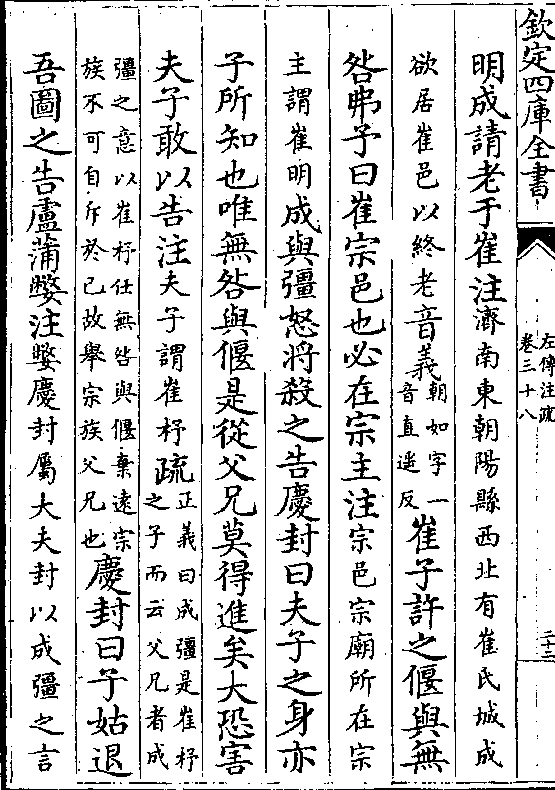 欽定四庫全書
左傳注疏
卷三十八
二十三
明成請老于崔注濟南東朝陽縣西北有崔氏城成
欲居崔邑以終老音義朝如字一
音直遥反崔子許之偃與無
咎弗予曰崔宗邑也必在宗主注宗邑宗廟所在宗
主謂崔明成與彊怒將殺之告慶封曰夫子之身亦
子所知也唯無咎與偃是從父兄莫得進矣大恐害
夫子敢以告注夫子謂崔杼疏正義曰成彊是崔杼
之子而云父兄者成
彊之意以崔杼任無咎與偃棄遠宗
族不可自斥於已故舉宗族父兄也慶封曰子姑退
吾圖之告盧蒲嫳注嫳慶封屬大夫封以成彊之言